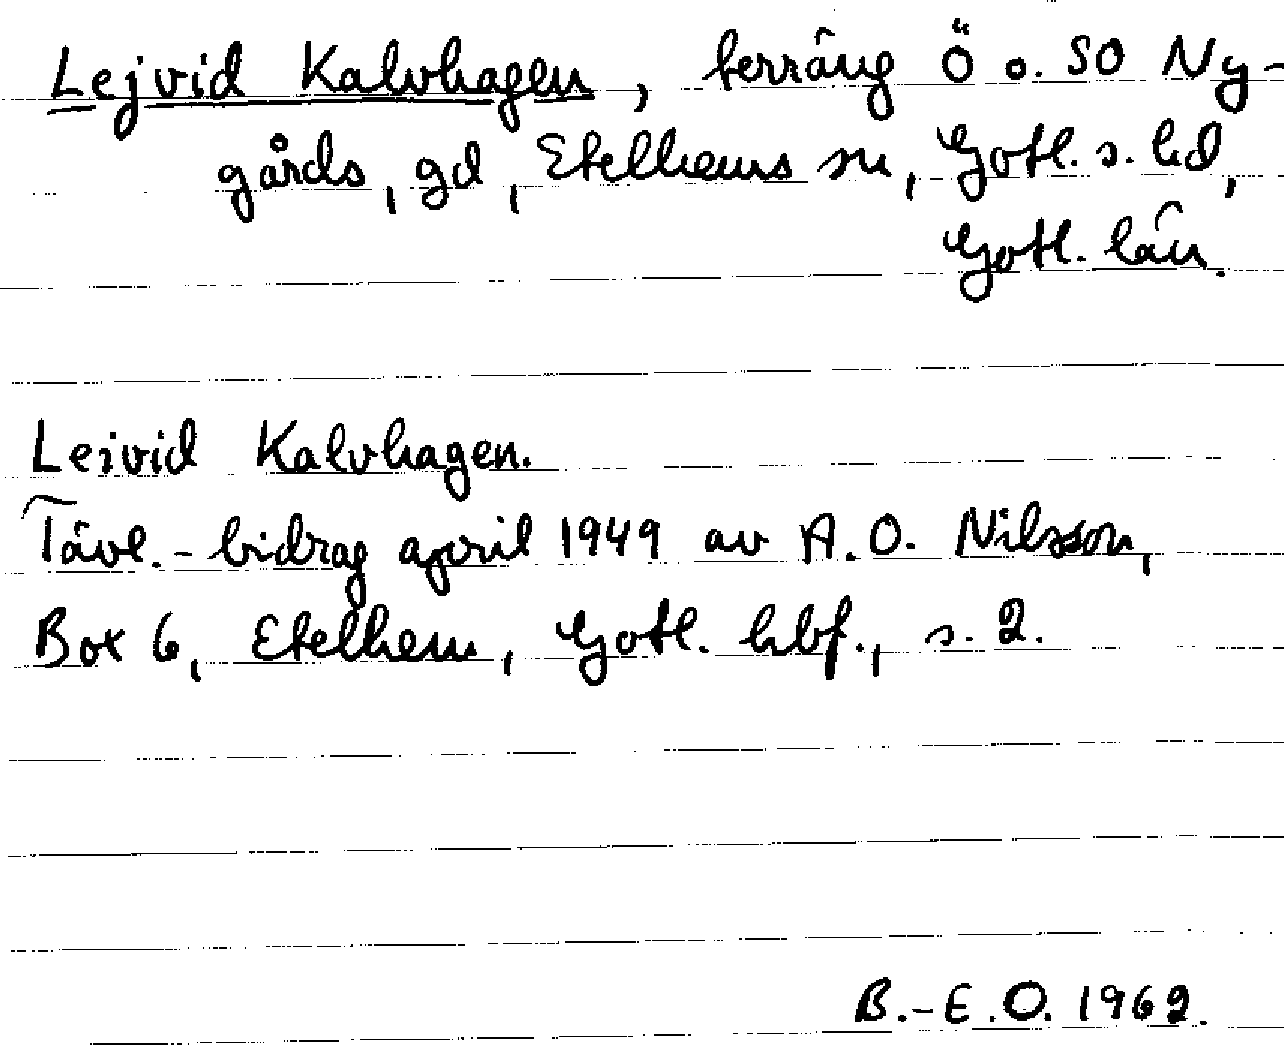 Lejvid Kalvhagen, terräng Ö o. SO Ny-
gårds, gd, Etelhems sn, Gotl. s. hd,
Gotl. län.
Leivid Kalvhagen.
Tävl.-bidrag april 1949 av A.O. Nilsson,
Box 6, Etelhem, Gotl. hbf., s. 2.
B.-E.O. 1962.